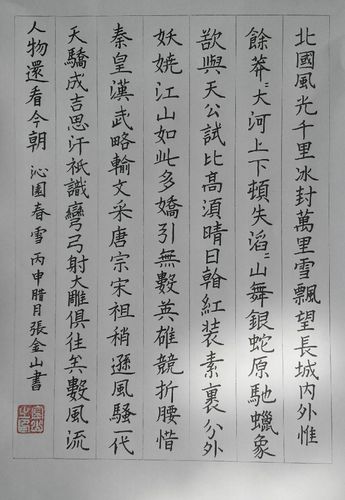 北國風光千里冰封萬里雪飄望長城內外惟
餘莽〻大河上下頓失滔〻山舞銀蛇原馳蠟象
欲與天公試比高須晴日看紅装素裹分外
妖嬈江山如此多嬌引無數英雄競折腰惜
秦皇漢武略輸文采唐宗宋祖稍遜風騷一代
天驕成吉思汗祇識彎弓射大雕俱往矣數風流
人物還看今朝 沁園春雪 丙申腊月張金山書